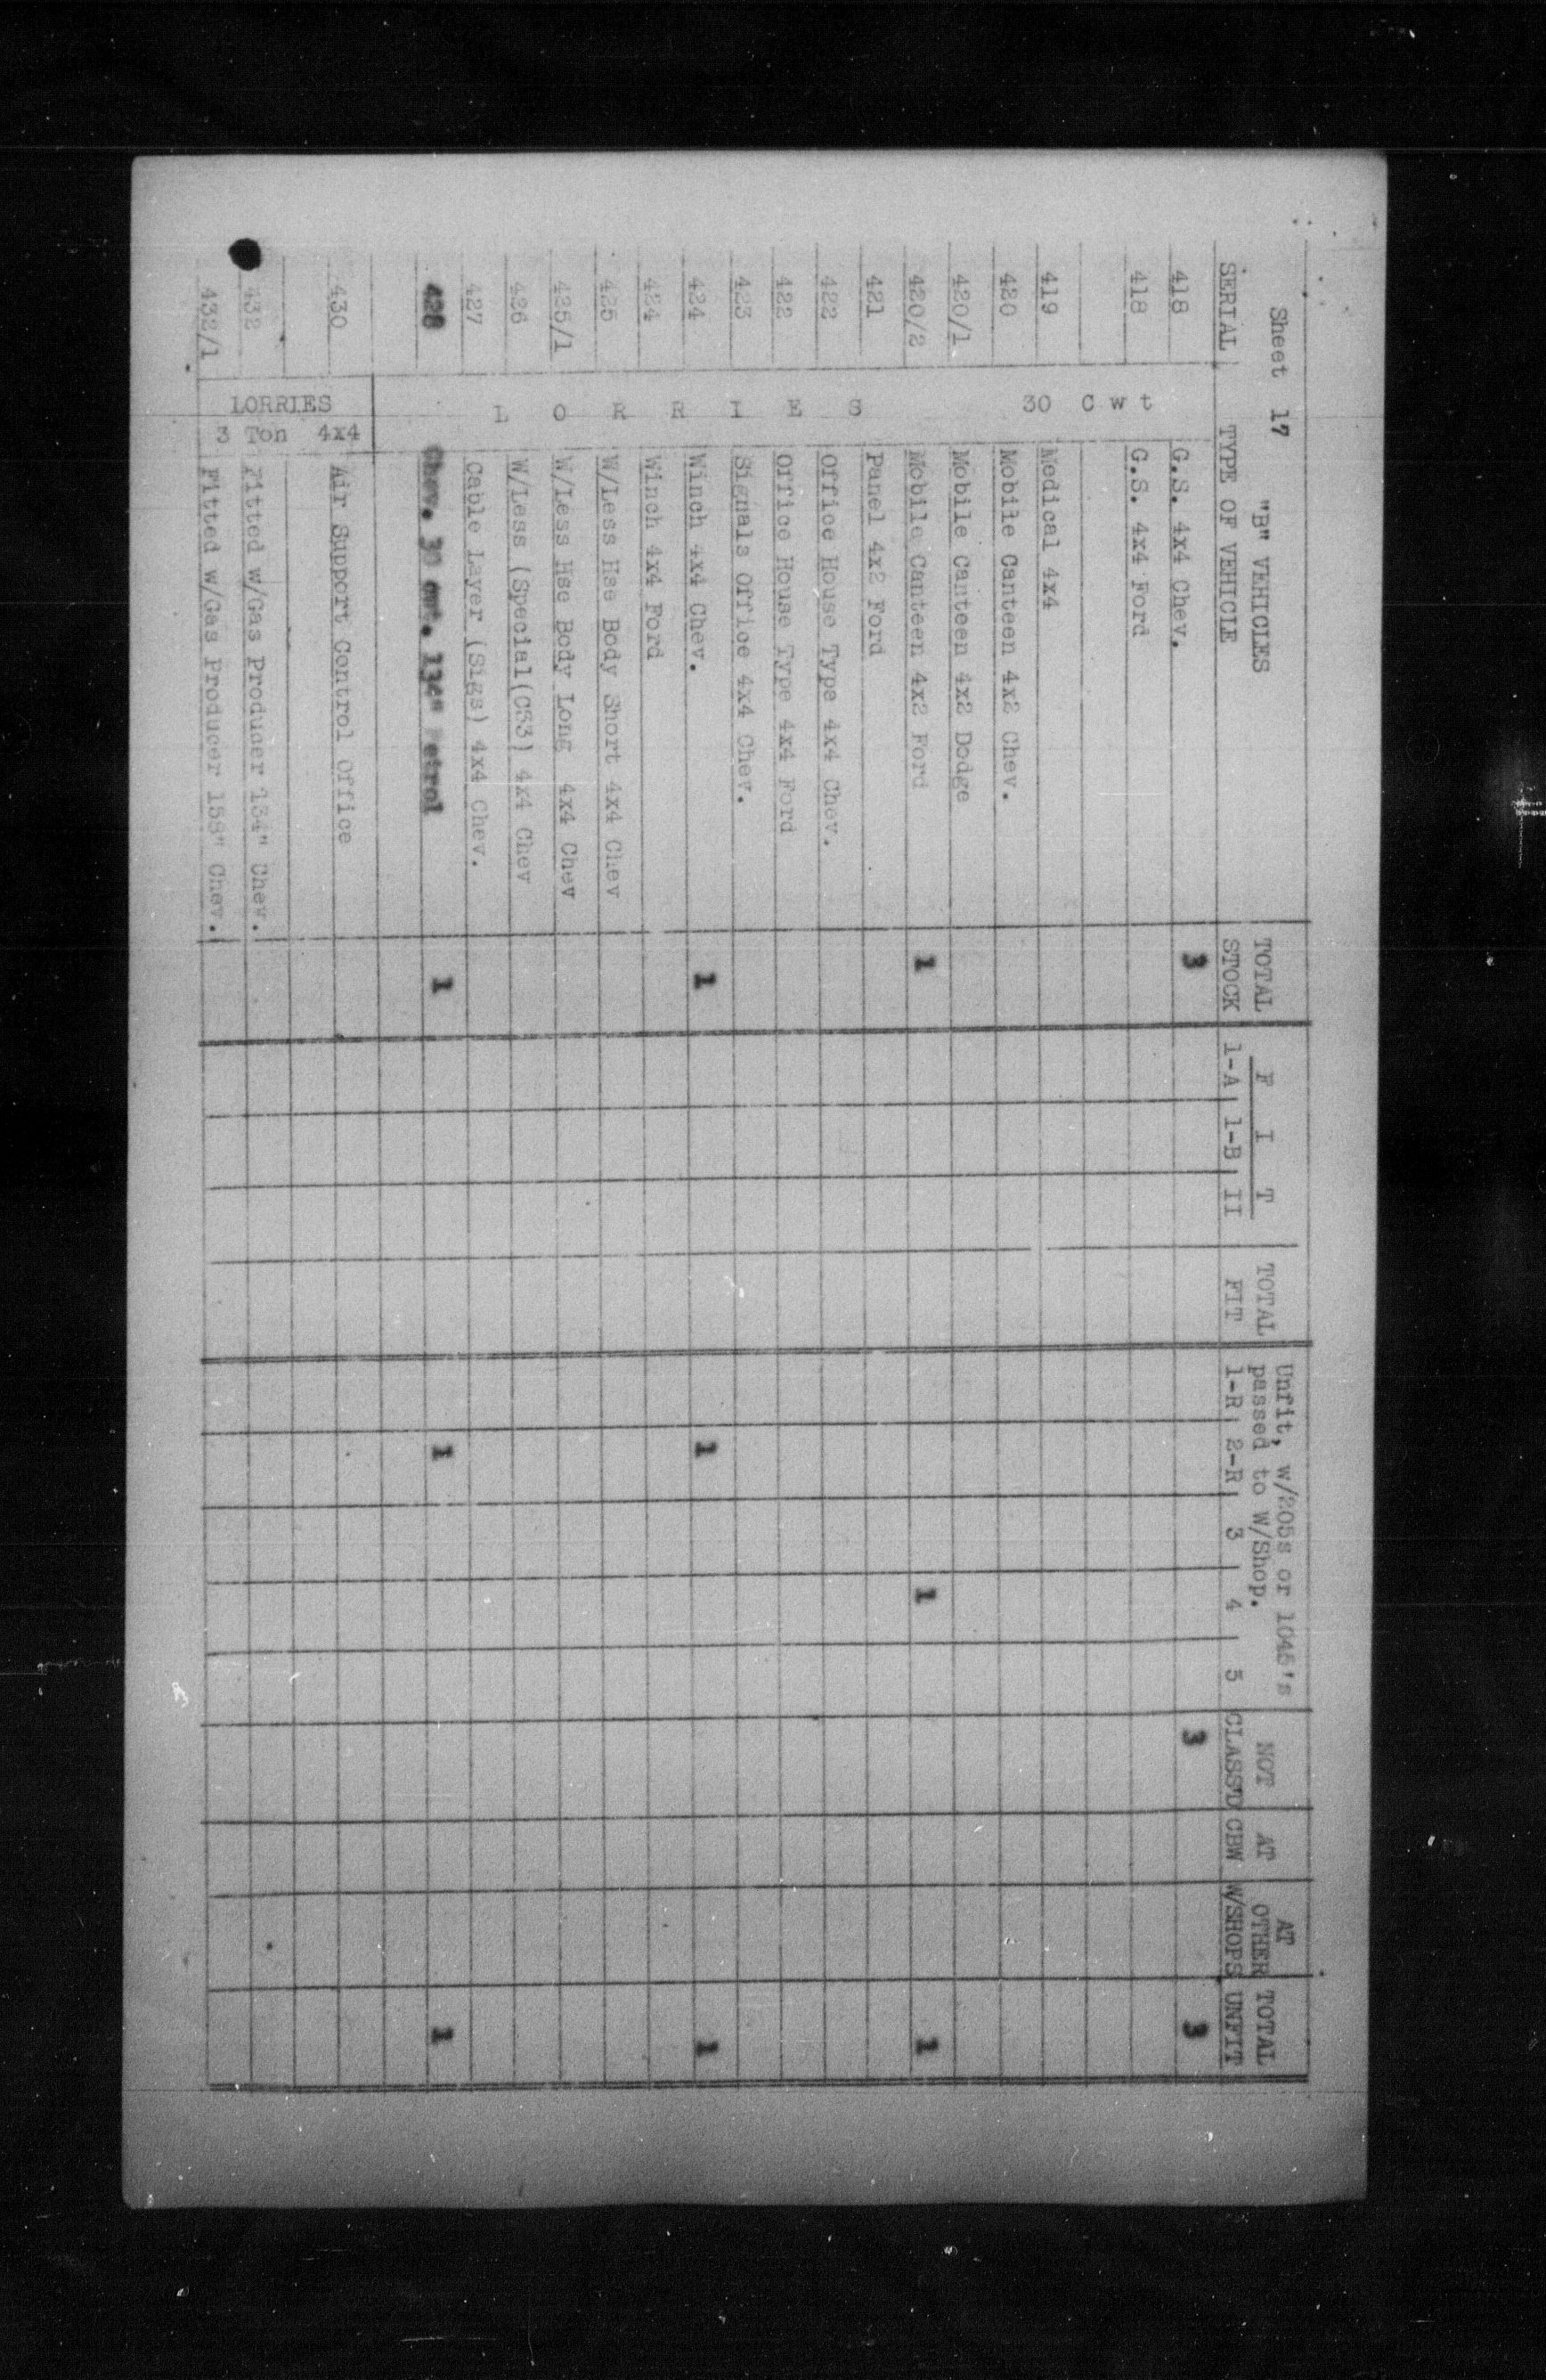 Sheet 17 "B" VEHICLES
Unfit, w/205s or 1045's AT
TOTAL F I T TOTAL passed to W/Shop. NOT AT OTHER TOTAL
SERIAL TYPE OF VEHICLE STOCK 1-A 1-B II FIT 1-R 2-R 3 4 5 CLASS'D CBW W/SHOPS UNFIT
30 Cwt
L O R R I E S
418 G.S. 4x4 Chev. 3 3 3
418 G.S. 4x4 Ford
419 Medical 4x4
420 Mobile Canteen 4x2 Chev.
420/1 Mobile Canteen 4x2 Dodge
420/2 Mobile Canteen 4x2 Ford 1 1 1
421 Panel 4x2 Ford
422 Office House Type 4x4 Chev.
422 Office House Type 4x4 Ford
423 Signals Office 4x4 Chev.
424 Winch 4x4 Chev. 1 1 1
424 Winch 4x4 Ford
425 W/Less Hse Body Short 4x4 Chev
425/1 W/Less Hse Body Long 4x4 Chev
426 W/Less (Special(C53) 4x4 Chev
427 Cable Layer (Sigs) 4x4 Chev.
428 Chev. 30 cwt. 134" Petrol 1 1 1
3 Ton 4x4
LORRIES
430 Air Support Control Office
432 Fitted w/Gas Producer 134" Chev.
432/1 Fitted w/Gas Producer 158" Chev.